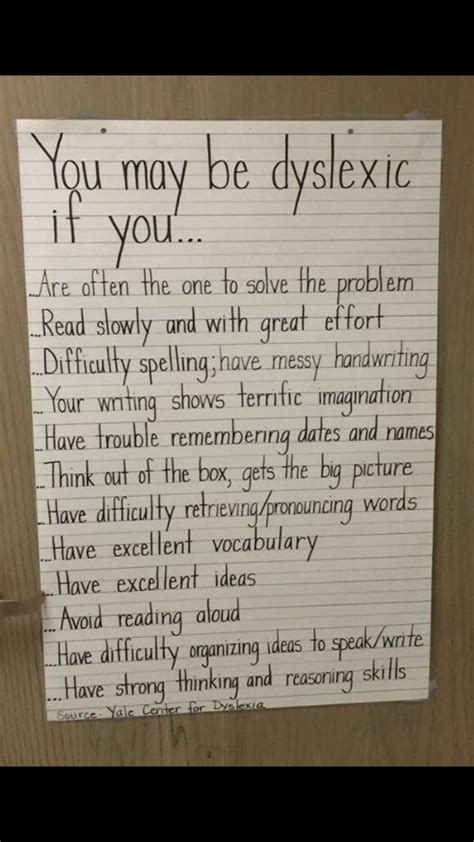 You may be dyslexic
if you...
...Are often the one to solve the problem
...Read slowly and with great effort
...Difficulty spelling; have messy handwriting
...Your writing shows terrific imagination
...Have trouble remembering dates and names
...Think out of the box, gets the big picture
...Have difficulty retrieving/pronouncing words
...Have excellent vocabulary
...Have excellent ideas
...Avoid reading aloud
...Have difficulty organizing ideas to speak/write
...Have strong thinking and reasoning skills
Source: Yale Center for Dyslexia